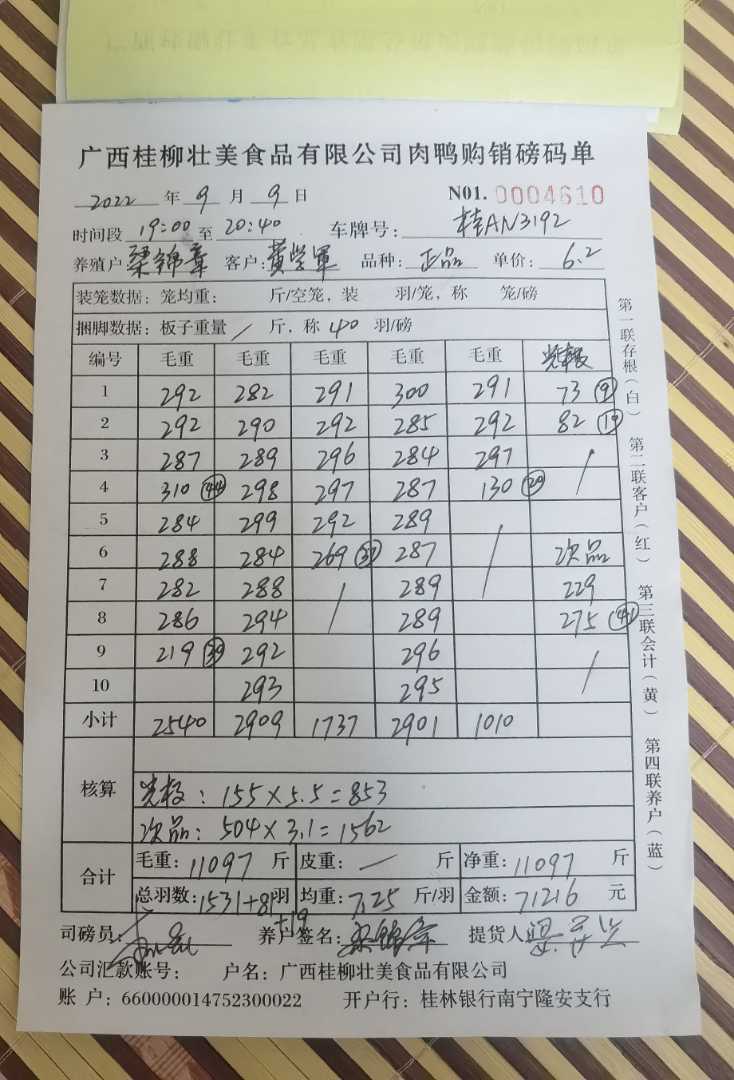 广西桂柳壮美食品有限公司肉鸭购销磅码单
2022 年 9 月 9 日 N01. 0004610
时间段 19:00 至 20:40 车牌号: 桂AN3192
养殖户 梁锦章 客户: 黄学军 品种: 正品 单价: 6.2
装笼数据: 笼均重: 斤/空笼, 装 羽/笼, 称 笼/磅
捆脚数据: 板子重量 / 斤, 称 40 羽/磅
编号 毛重 毛重 毛重 毛重 毛重
1 292 282 291 300 291 73 ⑨
2 292 290 292 285 292 82
3 287 289 296 284 297 /
4 310 ㊹ 298 297 287 130 ⑳
5 284 299 292 289 /
6 288 284 269 287 次品
7 282 288 / 289 229
8 286 294 289 275
9 219 292 296 /
10 293 295
小计 2540 2909 1737 2901 1010
核算
: 155×5.5=853
次品: 504×3.1=1562
合计 毛重: 11097 斤 皮重: — 斤 净重: 11097 斤
总羽数: 1531+81羽 均重: 7.25 斤/羽 金额: 71216 元
+19
司磅员: 养户签名: 梁锦章 提货人
公司汇款账号: 户名: 广西桂柳壮美食品有限公司
账 户: 660000014752300022 开户行: 桂林银行南宁隆安支行
第一联存根(白)
第二联客户(红)
第三联会计(黄)
第四联养户(蓝)